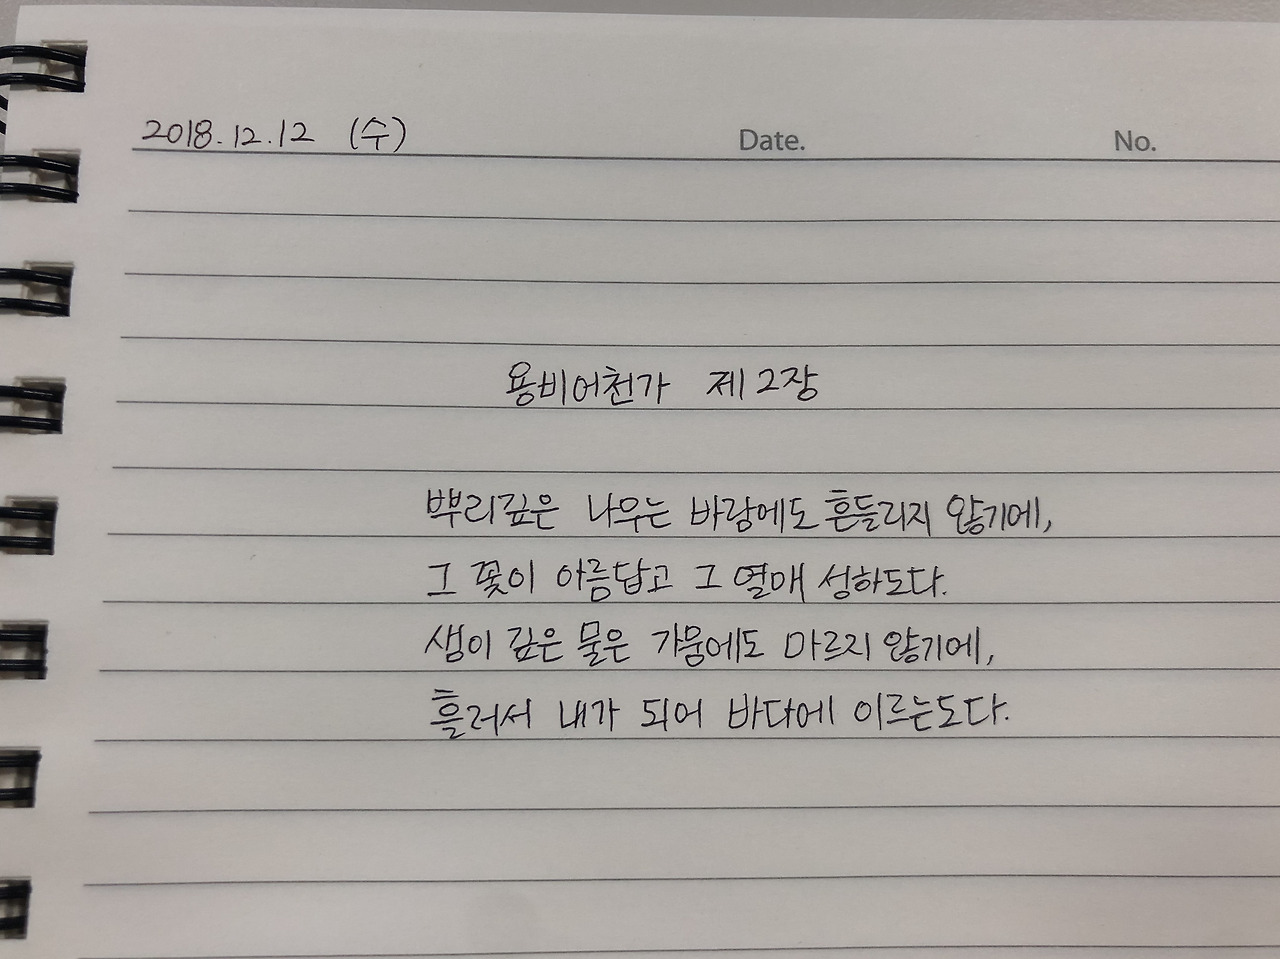 2018.12.12 (수) Date. No.
용비어천가 제2장
뿌리깊은 나무는 바람에도 흔들리지 않기에,
그 꽃이 아름답고 그 열매 성하도다.
샘이 깊은 물은 가뭄에도 마르지 않기에,
흘러서 내가 되어 바다에 이르는도다.